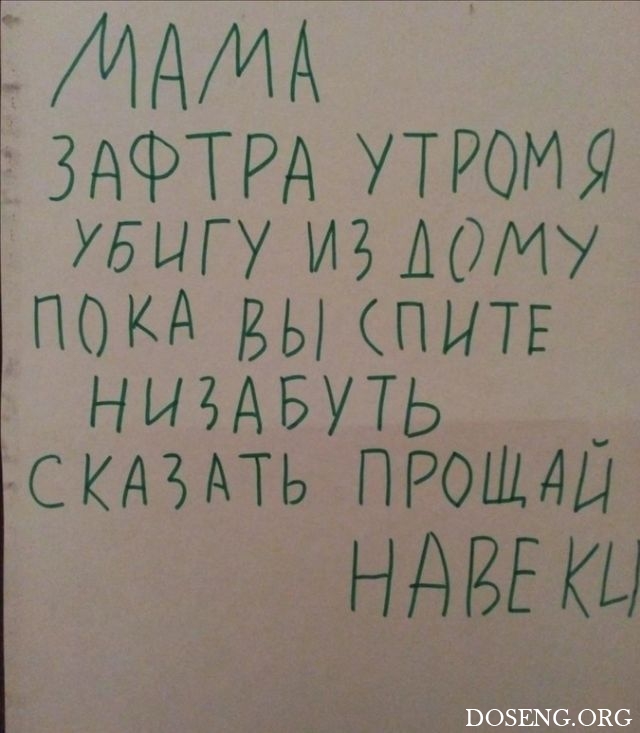 МАМА
ЗАФТРА УТРОМ Я
УБИГУ ИЗ ДОМУ
ПОКА ВЫ СПИТЕ
НИЗАБУТЬ
СКАЗАТЬ ПРОЩАЙ
НАВЕКИ
DOSENG.ORG